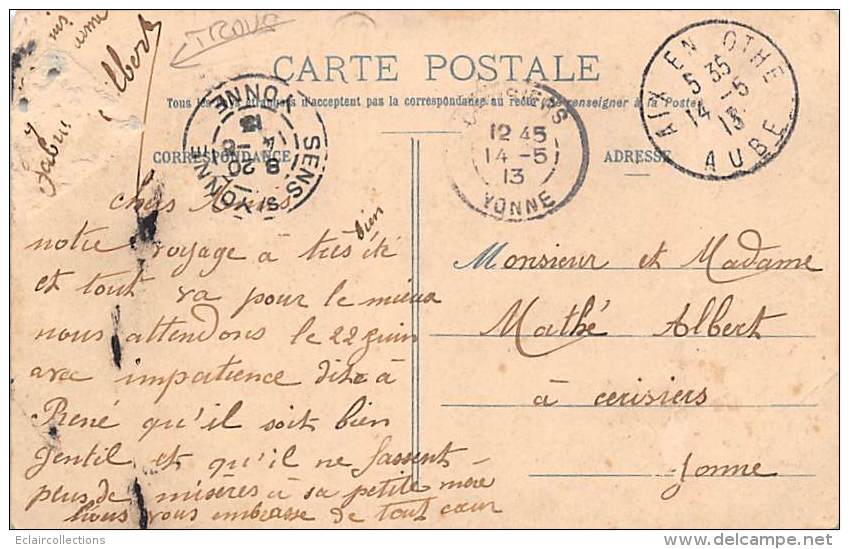 TROUS
Albert
CARTE POSTALE
Tous les pays étrangers n'acceptent pas la correspondance au recto (se renseigner à la Poste)
CORRESPONDANCE
ADRESSE
SENS S/ YONNE YONNE
8 20
14 -5
13
CERISIERS
12 45
14 -5
13
YONNE
AIX EN OTHE
5 35
14 -5
13
AUBE
chers Amis
notre voyage à très été bien
et tout va pour le mieux
nous attendons le 22 juin
avec impatience dite à
René qu'il soit bien
gentil et qu'il ne fassent
plus de misères à sa petite mère
Nous vous embrasse de tout cœur
Monsieur et Madame
Mathé Albert
à cerisiers
Yonne
Eclaircollections
delcampe.net